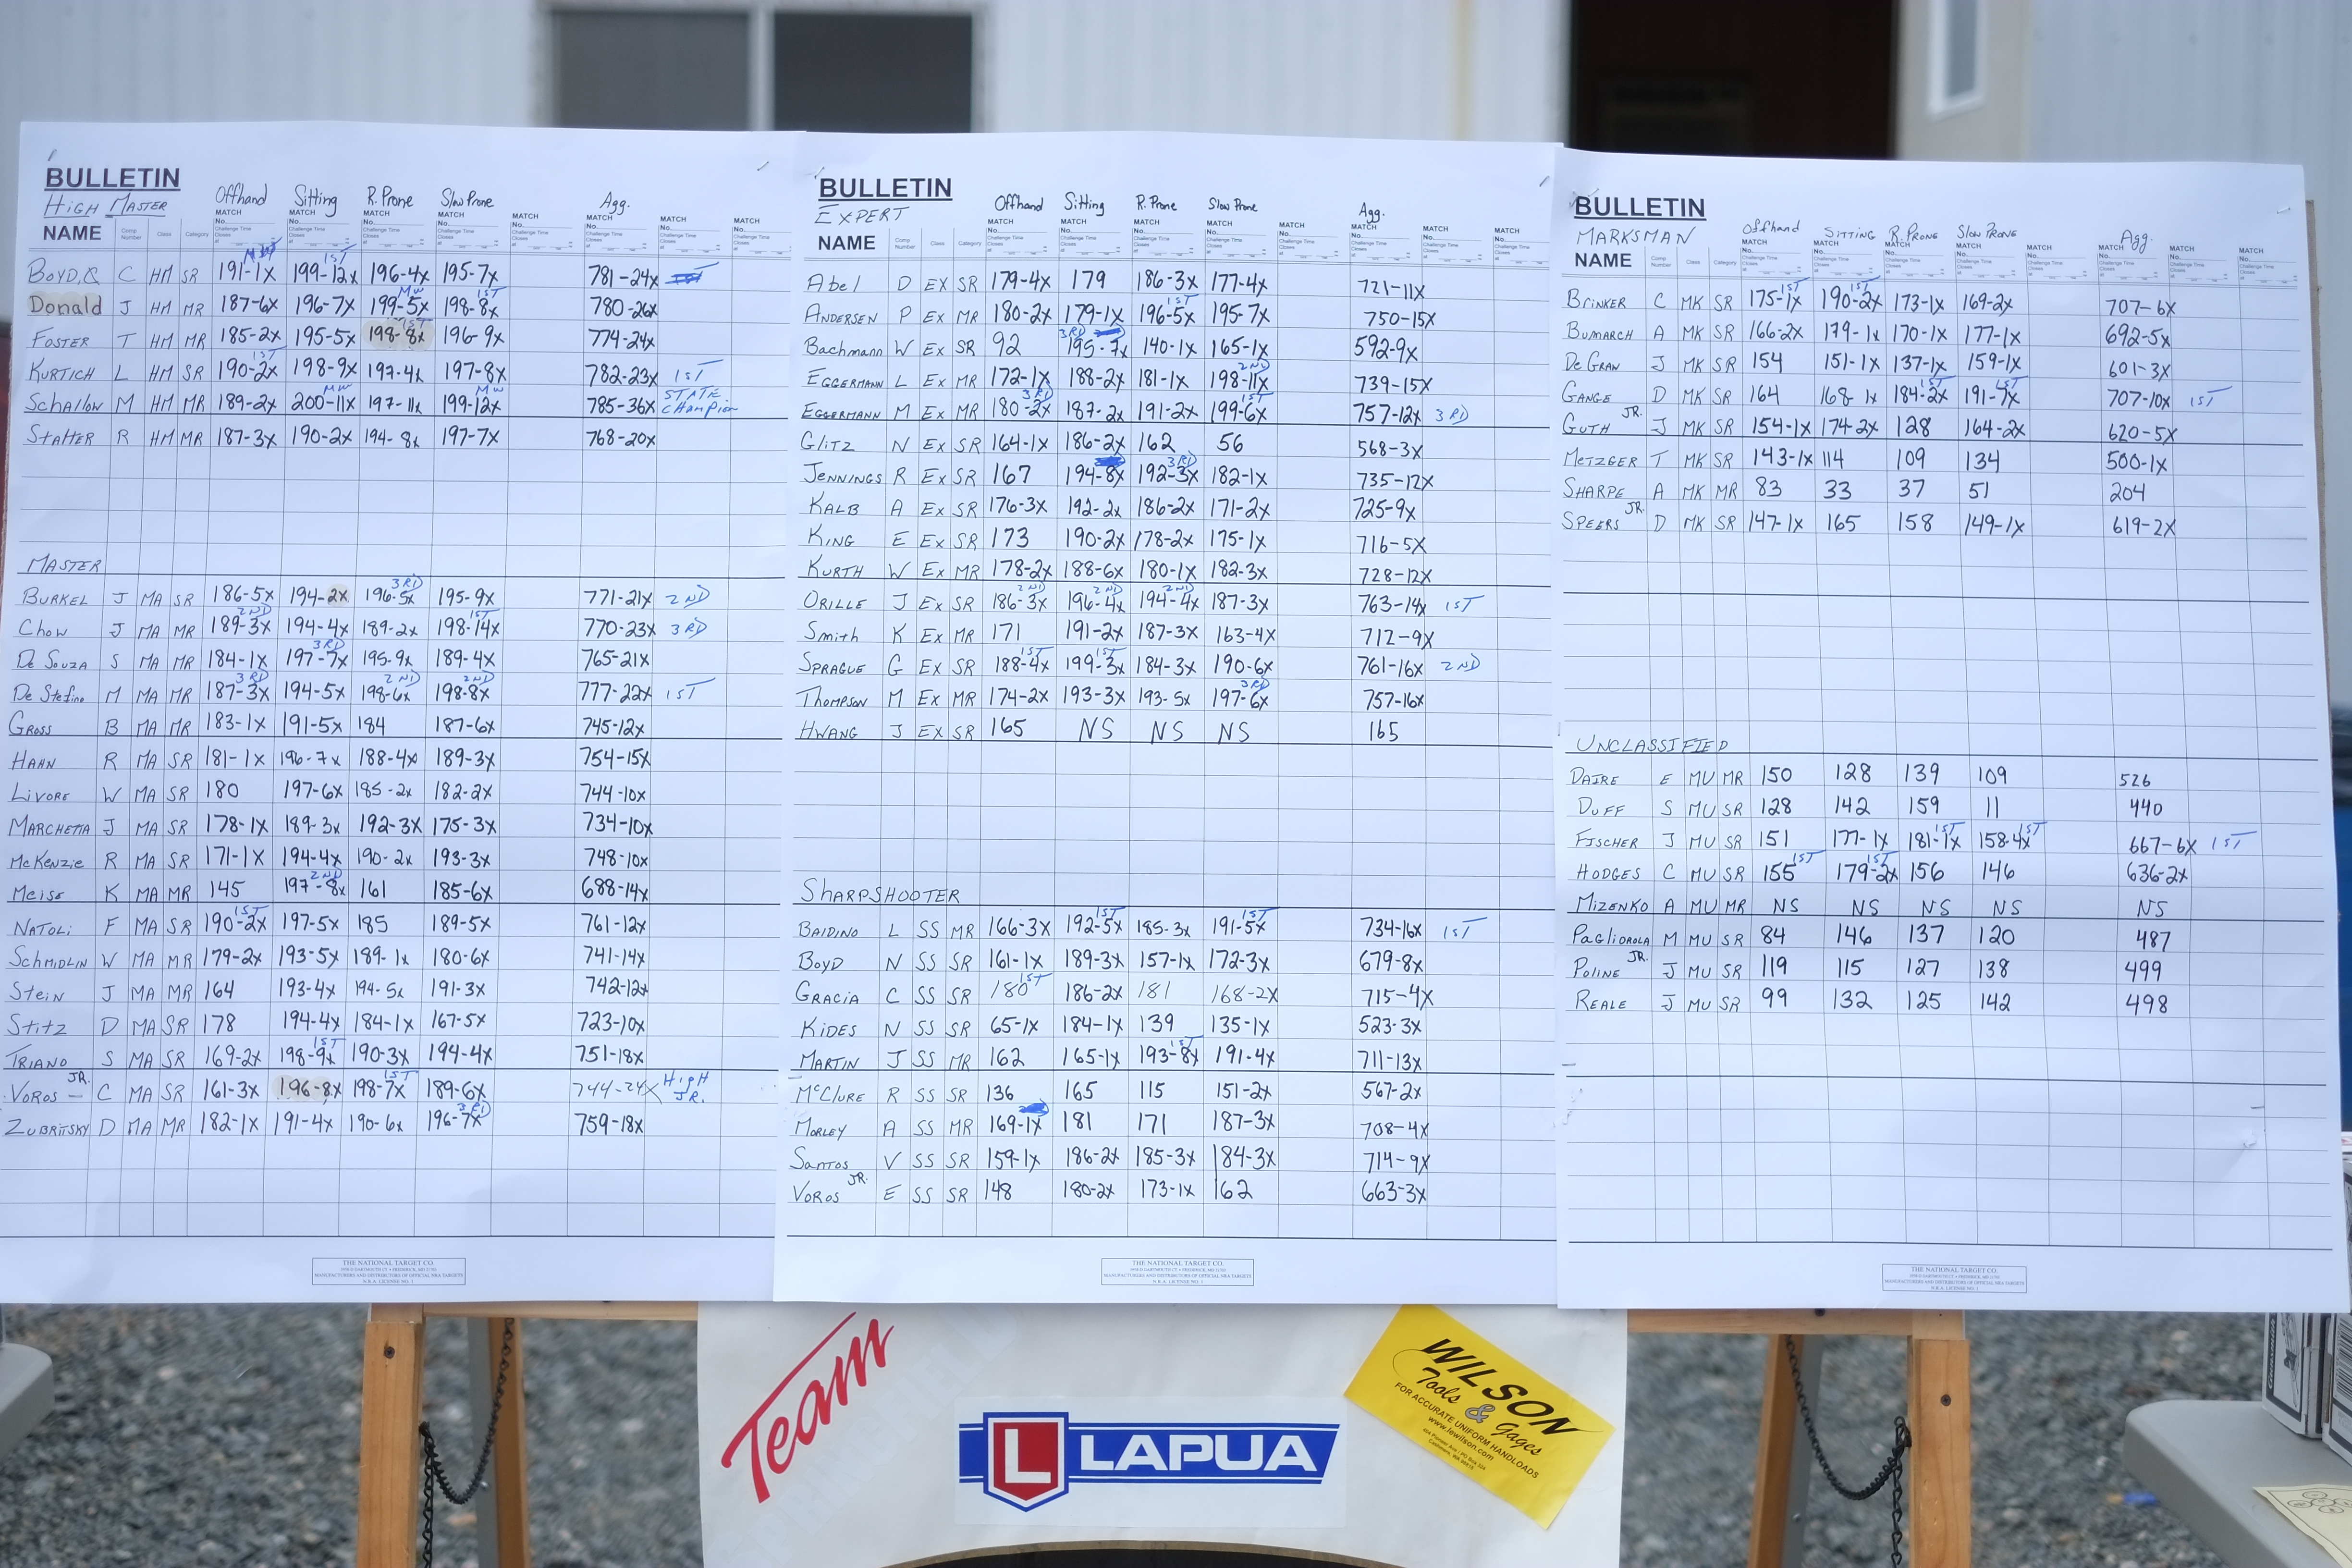 BULLETIN
HIGH MASTER
Offhand Sitting R. Prone Slow Prone Agg.
MATCH MATCH MATCH MATCH MATCH MATCH MATCH MATCH
NAME Comp Number Class Category
BOYD, Q C HM SR 191-1x MW 199-12x 1ST 196-4x 195-7x 781-24x
Donald J HM MR 187-6x 196-7x 199-5x MW 198-8x 1ST 780-26x
FOSTER T HM MR 185-2x 195-5x 198-8x 1ST 196-9x 774-24x
KURTICH L HM SR 190-2x 1ST 198-9x 197-4x 197-8x 782-23x 1ST
Schallow M HM MR 189-2x 200-11x MW 197-11x 199-12x MW 785-36x STATE CHAMPION
STATTER R HM MR 187-3x 190-2x 194-8x 197-7x 768-20x
MASTER
BURKEL J MA SR 186-5x 194-2x 196-5x 3RD 195-9x 771-21x 2ND
CHOW J MA MR 189-3x 2ND 194-4x 189-2x 198-14x 1ST 770-23x 3RD
De Souza S MA MR 184-1x 197-7x 3RD 195-9x 189-4x 765-21x
De Stefino M MA MR 187-3x 3RD 194-5x 198-6x 2ND 198-8x 2ND 777-22x 1ST
GROSS B MA MR 183-1x 191-5x 184 187-6x 745-12x
HAHN R MA SR 181-1x 196-7x 188-4x 189-3x 754-15x
LIVORE W MA SR 180 197-6x 185-2x 182-2x 744-10x
MARCHETTA J MA SR 178-1x 189-3x 192-3x 175-3x 734-10x
McKenzie R MA SR 171-1x 194-4x 190-2x 193-3x 748-10x
MEISE K MA MR 145 197-8x 2ND 161 185-6x 688-14x
NATOLI F MA SR 190-2x 1ST 197-5x 185 189-5x 761-12x
SCHMIDLIN W MA MR 179-2x 193-5x 189-1x 180-6x 741-14x
STEIN J MA MR 164 193-4x 194-5x 191-3x 742-12x
STITZ D MA SR 178 194-4x 184-1x 167-5x 723-10x
TRIANO S MA SR 169-2x 198-9x 1ST 190-3x 194-4x 751-18x
VOROS JR. C MA SR 161-3x 196-8x 198-7x 1ST 189-6x 744-24x High JR.
ZUBRITSKY D MA MR 182-1x 191-4x 190-6x 196-7x 3RD 759-18x
THE NATIONAL TARGET CO.
MANUFACTURERS AND DISTRIBUTORS OF OFFICIAL NRA TARGETS
N.R.A. LICENSE NO. 1
BULLETIN
EXPERT
Offhand Sitting R. Prone Slow Prone Agg.
MATCH MATCH MATCH MATCH MATCH MATCH MATCH MATCH
NAME Comp Number Class Category
Abel D EX SR 179-4x 179 186-3x 177-4x 721-11x
ANDERSEN P EX MR 180-2x 179-1x 196-5x 1ST 195-7x 750-15x
Bachmann W EX SR 92 195-7x 3RD 140-1x 165-1x 592-9x
EGGERMANN L EX MR 172-1x 188-2x 181-1x 198-11x 2ND 739-15x
EGGERMANN M EX MR 180-2x 3RD 187-2x 191-2x 199-6x 1ST 757-12x 3RD
GLITZ N EX SR 164-1x 186-2x 162 56 568-3x
JENNINGS R EX SR 167 194-8x 192-3x 3RD 182-1x 735-12x
KALB A EX SR 176-3x 192-2x 186-2x 171-2x 725-9x
KING E EX SR 173 190-2x 178-2x 175-1x 716-5x
KURTH W EX MR 178-2x 188-6x 180-1x 182-3x 728-12x
ORILLE J EX SR 186-3x 2ND 196-4x 2ND 194-4x 2ND 187-3x 763-14x 1ST
SMITH K EX MR 171 191-2x 187-3x 163-4x 712-9x
SPRAGUE G EX SR 188-4x 1ST 199-3x 1ST 184-3x 190-6x 761-16x 2ND
THOMPSON M EX MR 174-2x 193-3x 193-5x 197-6x 3RD 757-16x
HWANG J EX SR 165 NS NS NS 165
SHARPSHOOTER
BAIDINO L SS MR 166-3x 192-5x 1ST 185-3x 191-5x 1ST 734-16x 1ST
BOYD N SS SR 161-1x 189-3x 157-1x 172-3x 679-8x
GRACIA C SS SR 180 1ST 186-2x 181 168-2x 715-4x
KIDES N SS SR 65-1x 184-1x 139 135-1x 523-3x
MARTIN J SS MR 162 165-1x 193-8x 1ST 191-4x 711-13x
McCLURE R SS SR 136 165 115 151-2x 567-2x
MORLEY A SS MR 169-1x 181 171 187-3x 708-4x
SANTOS V SS SR 159-1x 186-2x 185-3x 184-3x 714-9x
VOROS JR. E SS SR 148 180-2x 173-1x 162 663-3x
THE NATIONAL TARGET CO.
MANUFACTURERS AND DISTRIBUTORS OF OFFICIAL NRA TARGETS
N.R.A. LICENSE NO. 1
BULLETIN
MARKSMAN
Offhand SITTING R. PRONE SLOW PRONE Agg.
MATCH MATCH MATCH MATCH MATCH MATCH MATCH MATCH
NAME Comp Number Class Category
BRINKER C MK SR 175-1x 1ST 190-2x 1ST 173-1x 169-2x 707-6x
BUMARCH A MK SR 166-2x 179-1x 170-1x 177-1x 692-5x
De GRAN J MK SR 154 151-1x 137-1x 159-1x 601-3x
GANGE D MK SR 164 168-1x 184-2x 1ST 191-7x 1ST 707-10x 1ST
GUTH JR. J MK SR 154-1x 174-2x 128 164-2x 620-5x
METZGER T MK SR 143-1x 114 109 134 500-1x
SHARPE A MK MR 83 33 37 51 204
SPEERS JR. D MK SR 147-1x 165 158 149-1x 619-2x
UNCLASSIFIED
DAIRE E MU MR 150 128 139 109 526
DUFF S MU SR 128 142 159 11 440
FISCHER J MU SR 151 177-1x 181-1x 1ST 158-4x 1ST 667-6x 1ST
HODGES C MU SR 155 1ST 179-2x 1ST 156 146 636-2x
MIZENKO A MU MR NS NS NS NS NS
PAGLIOROLA M MU SR 84 146 137 120 487
POLINE JR. J MU SR 119 115 127 138 499
REALE J MU SR 99 132 125 142 498
THE NATIONAL TARGET CO.
MANUFACTURERS AND DISTRIBUTORS OF OFFICIAL NRA TARGETS
N.R.A. LICENSE NO. 1
Team
L LAPUA
WILSON
Tools & Gages
FOR ACCURATE UNIFORM HANDLOADS
www.lewilson.com